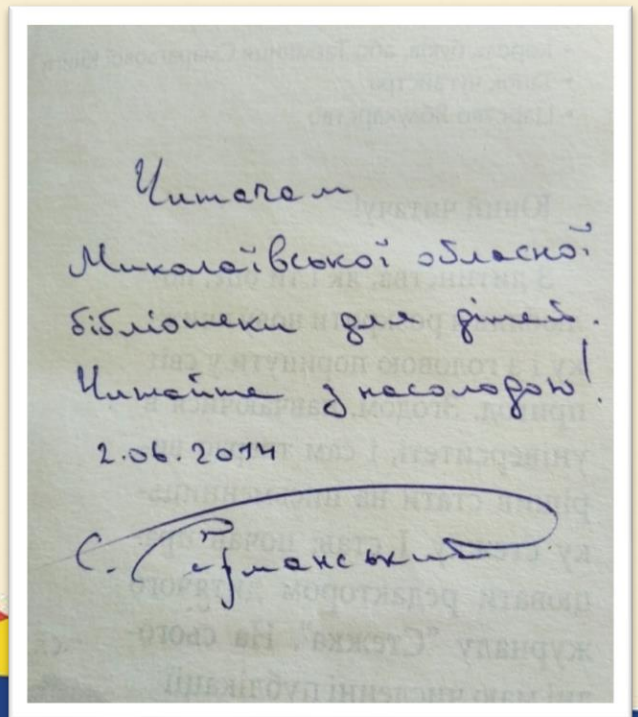 Читачам
Миколаївської обласної
бібліотеки для дітей.
Читайте з насолодою!
2.06.2014
С. Дерманський